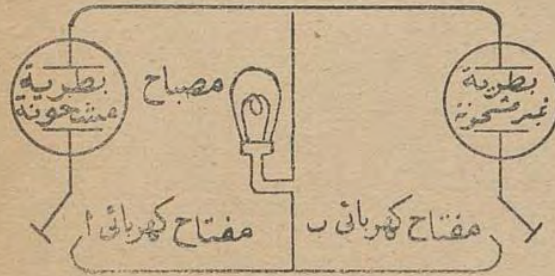 بطرية
مشحونة
مصباح
بطرية
غير مشحونة
مفتاح كهربائى ب
مفتاح كهربائى ا